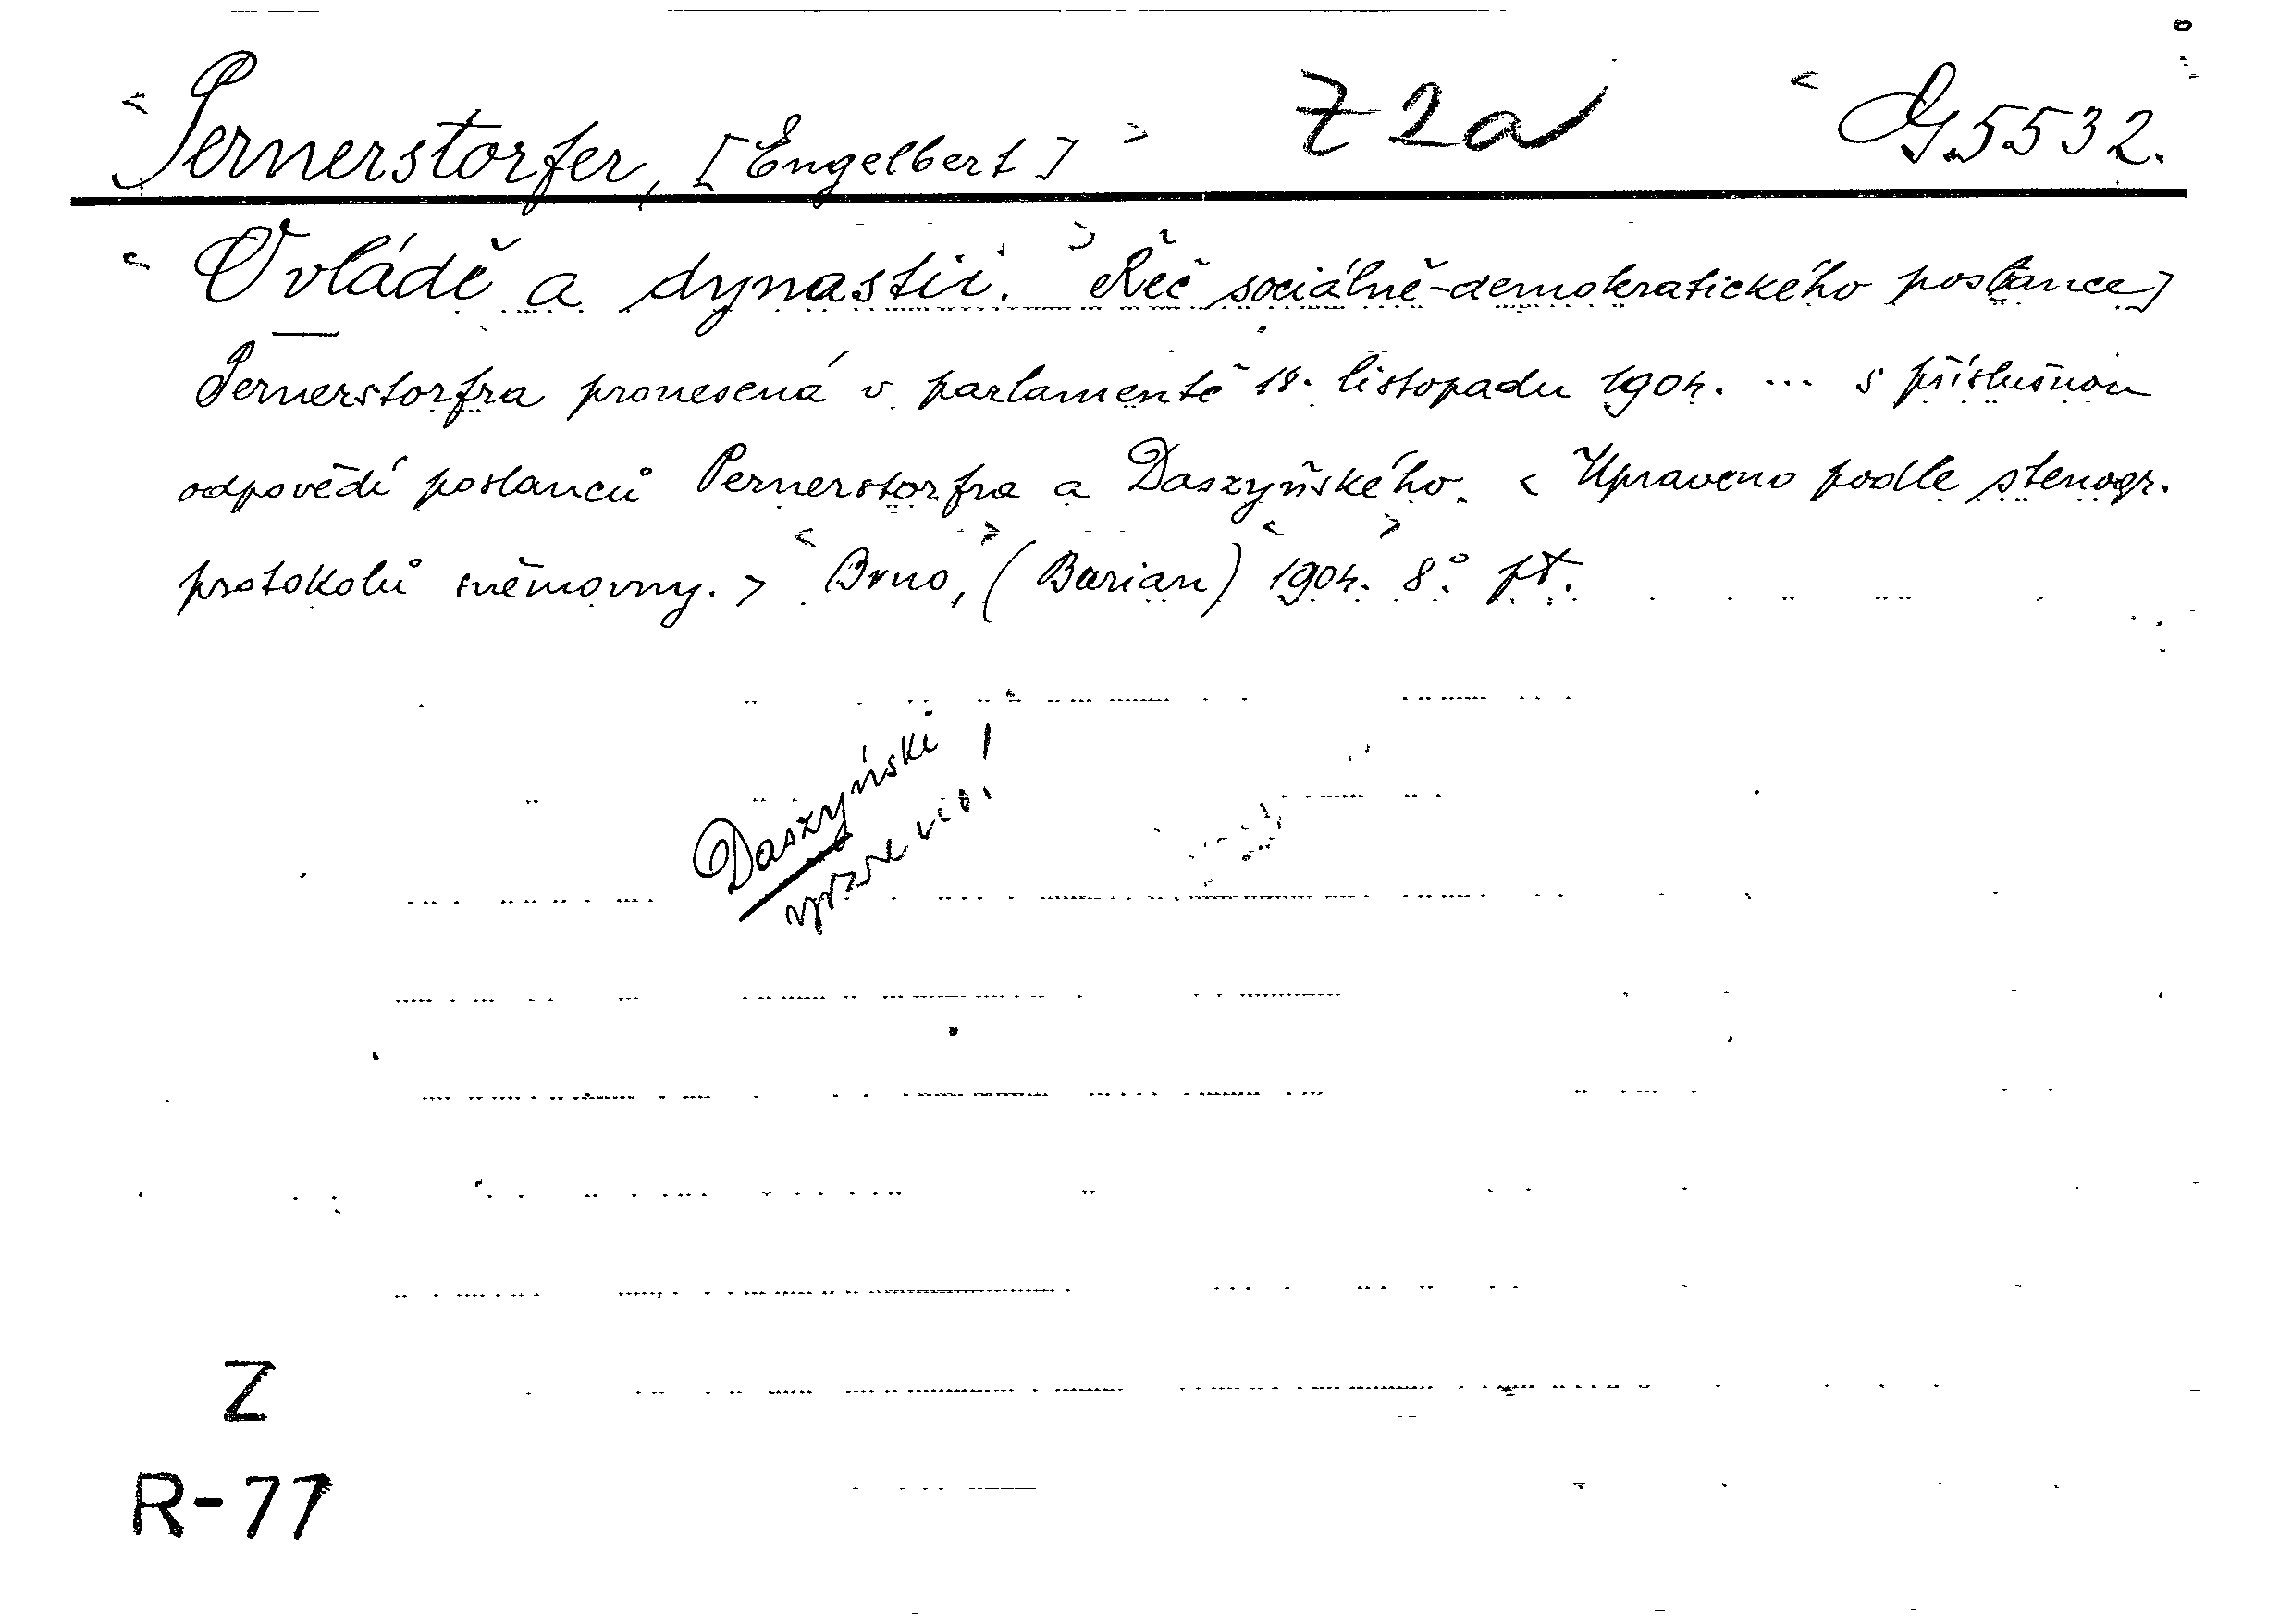 < Pernerstorfer, [Engelbert] > Z2a < G5532.
< O vládě a dynastii. > Řeč sociálně-demokratického poslance]
Pernerstorfra pronesená v parlamentě 18. listopadu 1904. ... s příslušnou
odpovědí poslanců Pernerstorfra a Daszyńského. < Upraveno podle stenogr.
protokolů sněmovny. > < Brno, > (Burian) < 1904. > 8° př.
Daszyński
Z
R-77